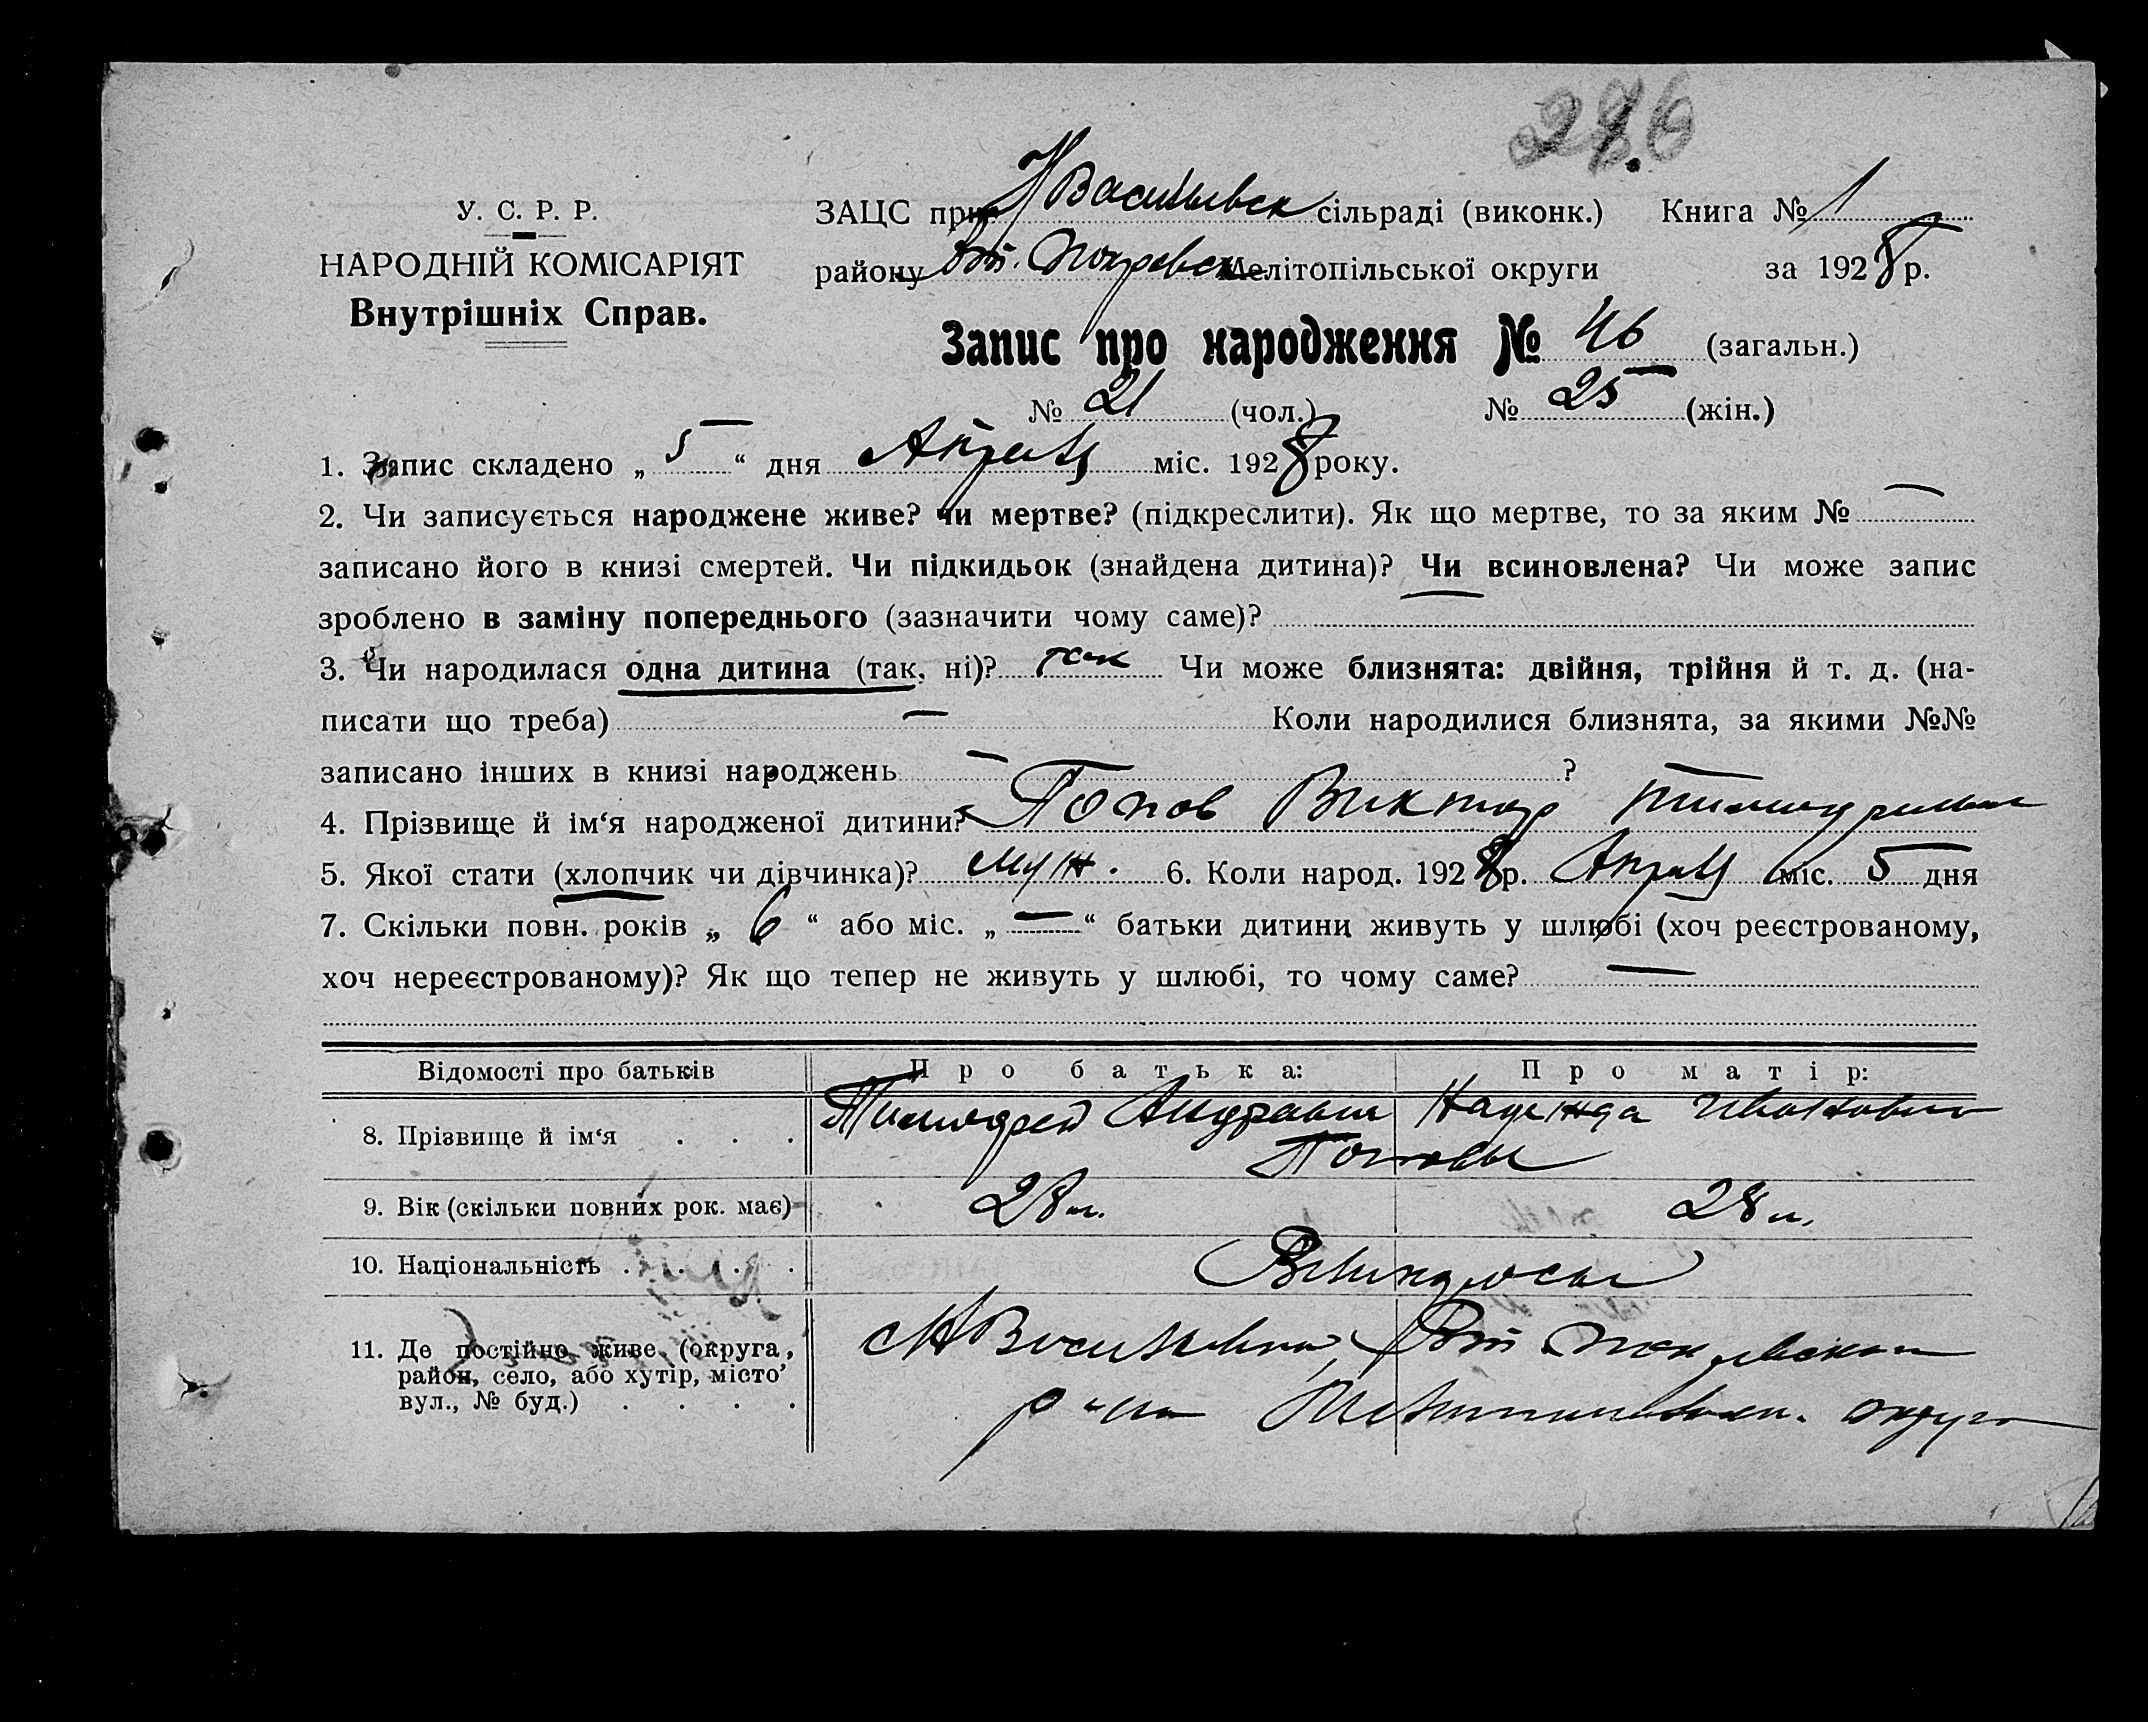 276
У. С. Р. Р.
НАРОДНІЙ КОМІСАРІЯТ
Внутрішніх Справ.
ЗАЦС при НВасильевск сільраді (виконк.) Книга № 1
району Вт. Покровск Мелітопільської округи за 1928 р.
Запис про народження № 46 (загальн.)
№ 21 (чол.) № 25 (жін.)
1. Запис складено „ 5 “ дня Апреля міс. 1928 року.
2. Чи записується народжене живе? чи мертве? (підкреслити). Як що мертве, то за яким № —
записано його в книзі смертей. Чи підкидьок (знайдена дитина)? Чи всиновлена? Чи може запис
зроблено в заміну попереднього (зазначити чому саме)?
3. Чи народилася одна дитина (так, ні)? так Чи може близнята: двійня, трійня й т. д. (на-
писати що треба) — Коли народилися близнята, за якими №№
записано інших в книзі народжень — ?
4. Прізвище й ім‘я народженої дитини? Попов Виктор
5. Якої стати (хлопчик чи дівчинка)? муж. 6. Коли народ. 1928 р. Апреля міс. 5 дня
7. Скільки повн. років „ 6 “ або міс. „ — “ батьки дитини живуть у шлюбі (хоч реєстрованому,
хоч нереєстрованому)? Як що тепер не живуть у шлюбі, то чому саме? —
Відомості про батьків Про батька: Про матір:
8. Прізвище й ім‘я . . . Тимофей Андреевич Надежда Ивановна
Поповы
9. Вік (скільки повних рок. має) 28 л. 28 л.
10. Національність . . . . Великоросы
11. Де постійно живе (округа,
район, село, або хутір, місто’
вул., № буд.) . . . .
НВасильевка, Вт Покровского
р-на Мелитопольск. округа